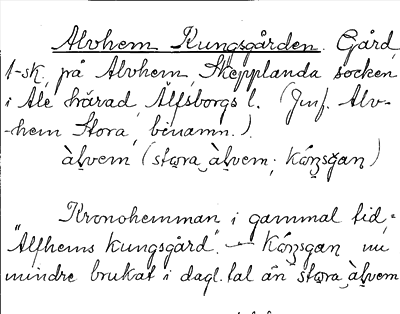 Alvhem Kungsgården. Gård,
1-sk, på Alvhem, Skepplanda socken
i Ale härad, Älfsborgs l. (Jmf. Alv-
-hem Stora, binamn.)
àlvem (stωra àlvem; Kóŋsgan)
Kronohemman i gammal tid,=
"Alfhems Kungsgård". — Kóŋsgan nu
mindre brukat i dagl. tal än stωra àlvem